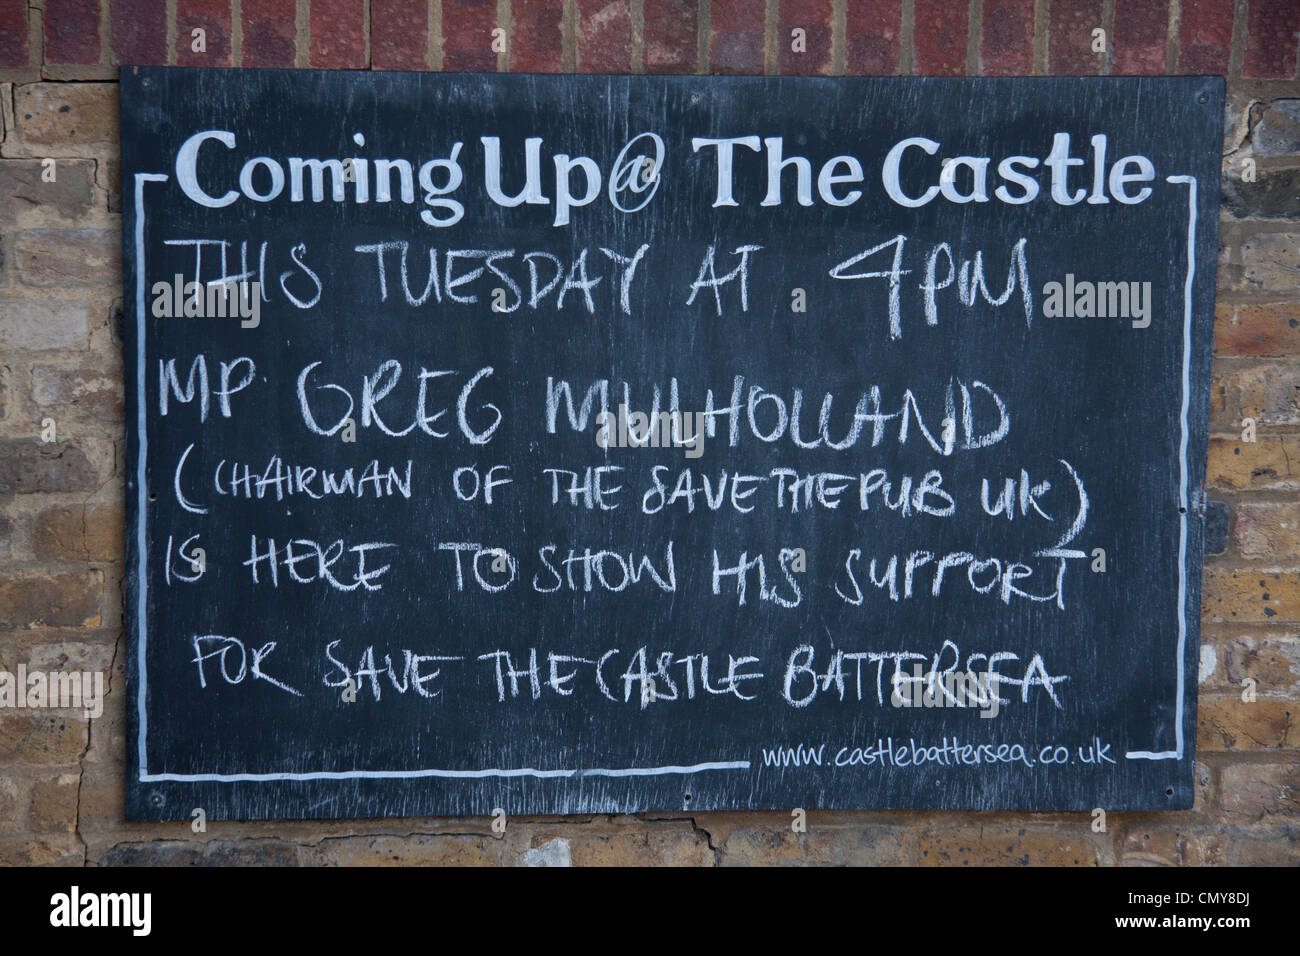 Coming Up@ The Castle
THIS TUESDAY AT 4PM
MP GREG MULHOLLAND
(CHAIRMAN OF THE SAVE THE PUB UK)
IS HERE TO SHOW HIS SUPPORT
FOR SAVE THE CASTLE BATTERSEA
www.castlebattersea.co.uk
alamy
Image ID: CMY8DJ
www.alamy.com